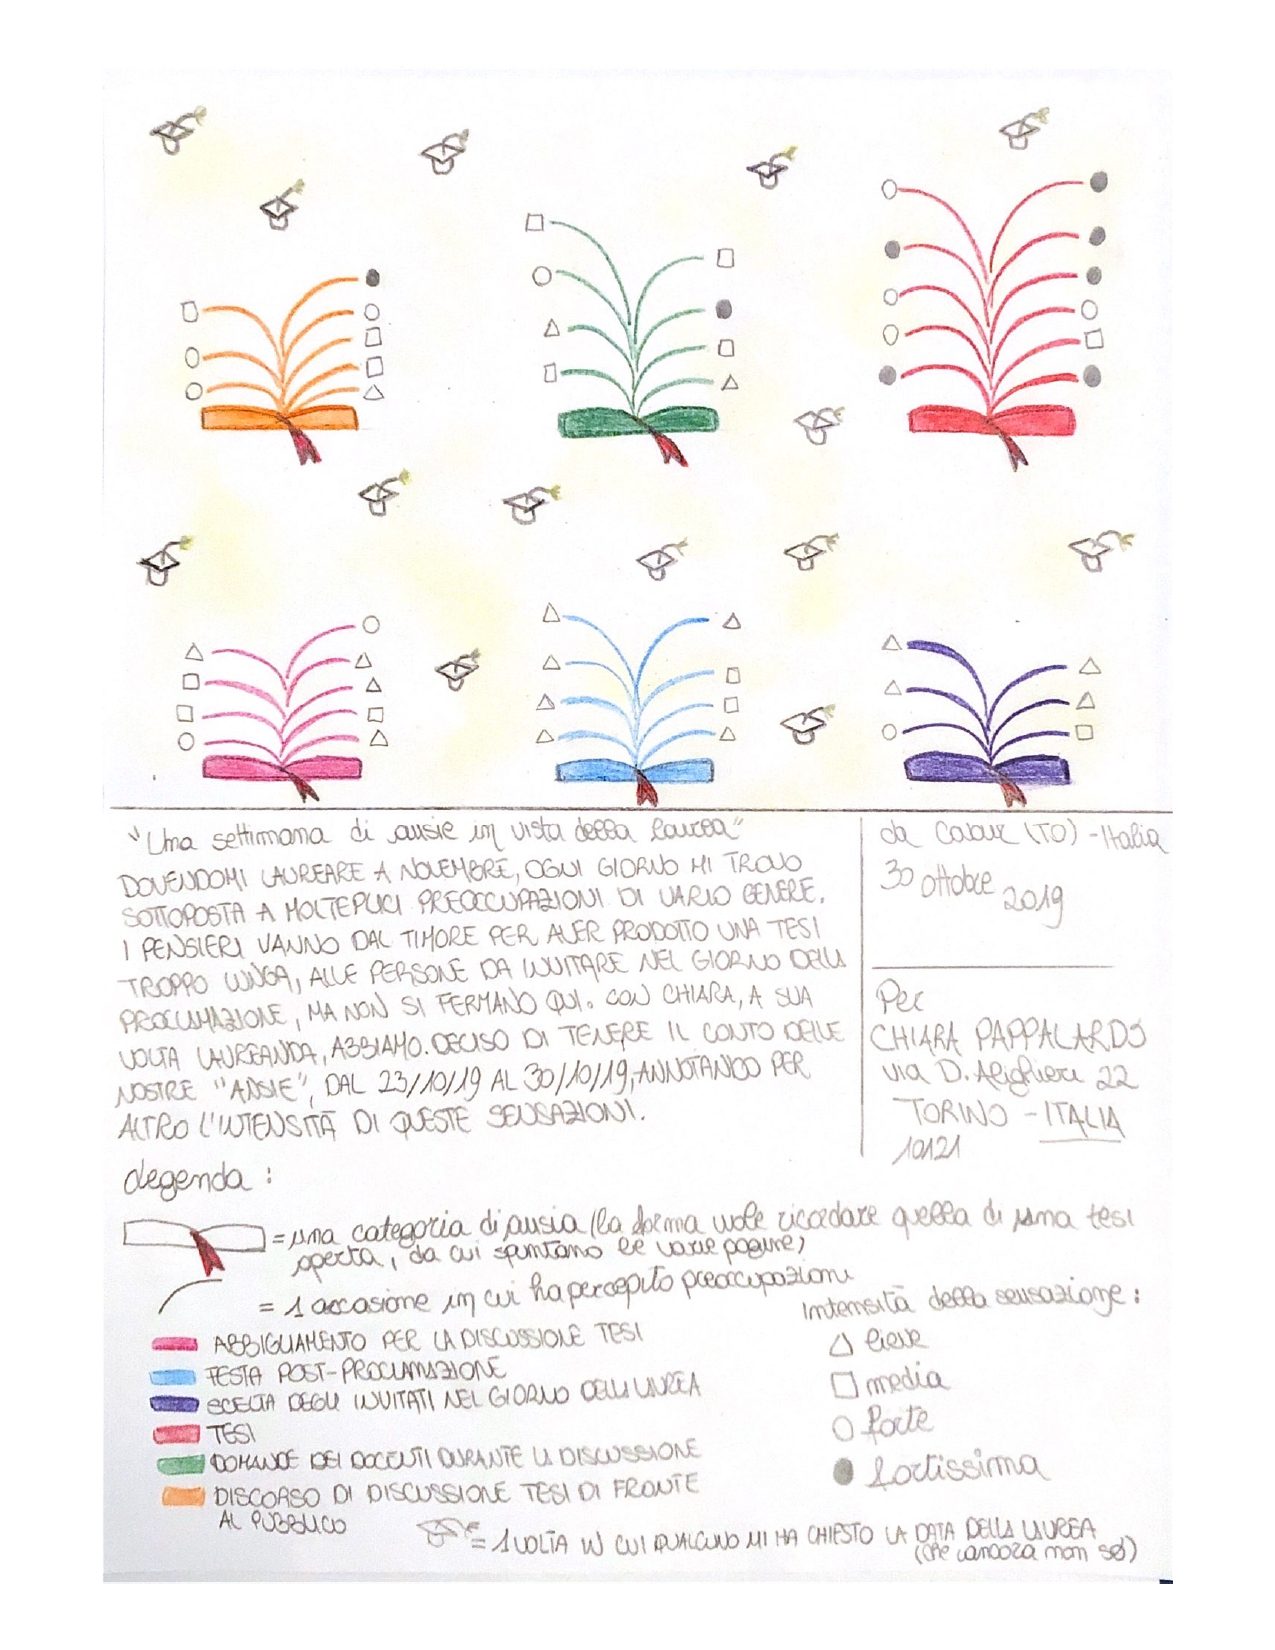 "Una settimana di ansie in vista della laurea"
DOVENDOMI LAUREARE A NOVEMBRE, OGNI GIORNO MI TROVO
SOTTOPOSTA A MOLTEPLICI PREOCCUPAZIONI DI VARIO GENERE.
I PENSIERI VANNO DAL TIMORE PER AVER PRODOTTO UNA TESI
TROPPO LUNGA, ALLE PERSONE DA INVITARE NEL GIORNO DELLA
PROCLAMAZIONE, MA NON SI FERMANO QUI. CON CHIARA, A SUA
VOLTA LAUREANDA, ABBIAMO DECISO DI TENERE IL CONTO DELLE
NOSTRE "ANSIE", DAL 23/10/19 AL 30/10/19, ANNOTANDO PER
ALTRO L'INTENSITÀ DI QUESTE SENSAZIONI.
da (TO) - Italia
30 ottobre 2019
Per
CHIARA PAPPALARDO
via D. Alighieri 22
TORINO - ITALIA
10121
Legenda:
= una categoria di ansia (la forma vuole ricordare quella di una tesi
aperta, da cui spuntano le varie pagine)
= 1 occasione in cui ho percepito preoccupazioni
ABBIGLIAMENTO PER LA DISCUSSIONE TESI
FESTA POST-PROCLAMAZIONE
SCELTA DEGLI INVITATI NEL GIORNO DELLA LAUREA
TESI
DOMANDE DEI DOCENTI DURANTE LA DISCUSSIONE
DISCORSO DI DISCUSSIONE TESI DI FRONTE
AL PUBBLICO
Intensità della sensazione:
lieve
media
forte
fortissima
= 1 VOLTA IN CUI QUALCUNO MI HA CHIESTO LA DATA DELLA LAUREA
(che ancora non so)